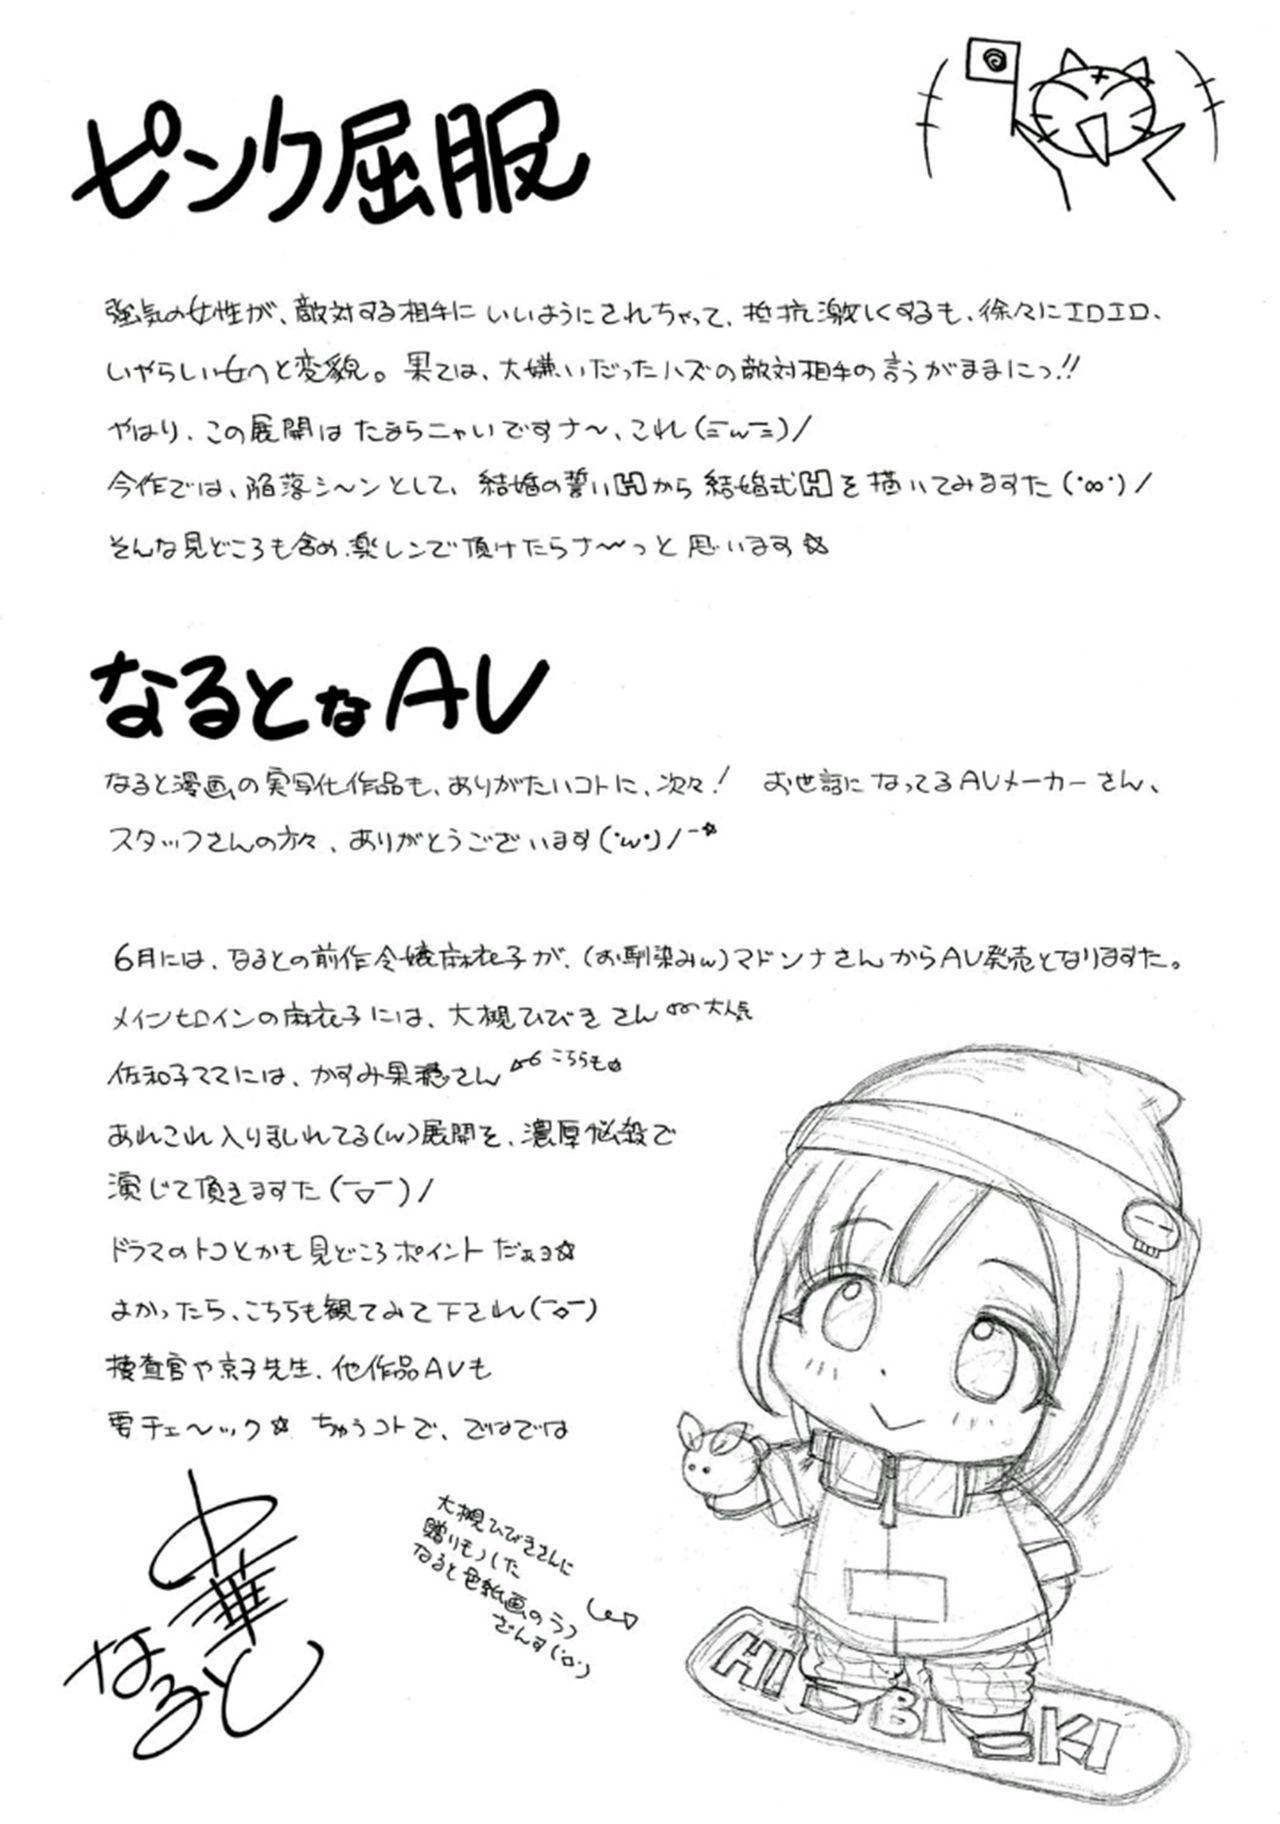 ピンク屈服
強気の女性が、敵対する相手にいいようにされちゃって、抵抗激しくするも、徐々にエロエロ、
いやらしい女へと変貌。果ては、大嫌いだったハズの敵対相手の言うがままにっ!!
やはり、この展開はたまらニャいですナ〜、これ(≡ω≡)/
今作では、陥落シ〜ンとして、結婚の誓いHから結婚式Hを描いてみますた(・∞・)/
そんな見どころも含め、楽レンで頂けたらナ〜っと思います☆
なるとなAV
なると漫画の実写化作品も、ありがたいコトに、次々! お世話になってるAVメーカーさん、
スタッフさんの方々、ありがとうございます(・ω・)/-☆
6月には、なるとの前作令嬢麻衣子が、(お馴染みw)マドンナさんからAV発売となりますた。
メインヒロインの麻衣子には、大槻ひびきさん 大人気
佐和子ママには、かすみ果穂さん こちらも☆
あれこれ入りましれてる(w)展開を、濃厚悩殺で
演じて頂きますた(￣▽￣)/
ドラマのトコとかも見どころポイントだぁョ☆
よかったら、こちらも観てみて下され(￣◇￣)
捜査官や京子先生、他作品AVも
要チェ〜ック☆ ちゅうコトで、ではでは
中華
なると
大槻ひびきさんに
贈りものした
なると色紙画のラフ
ざんす(・o・)
HIBIKI